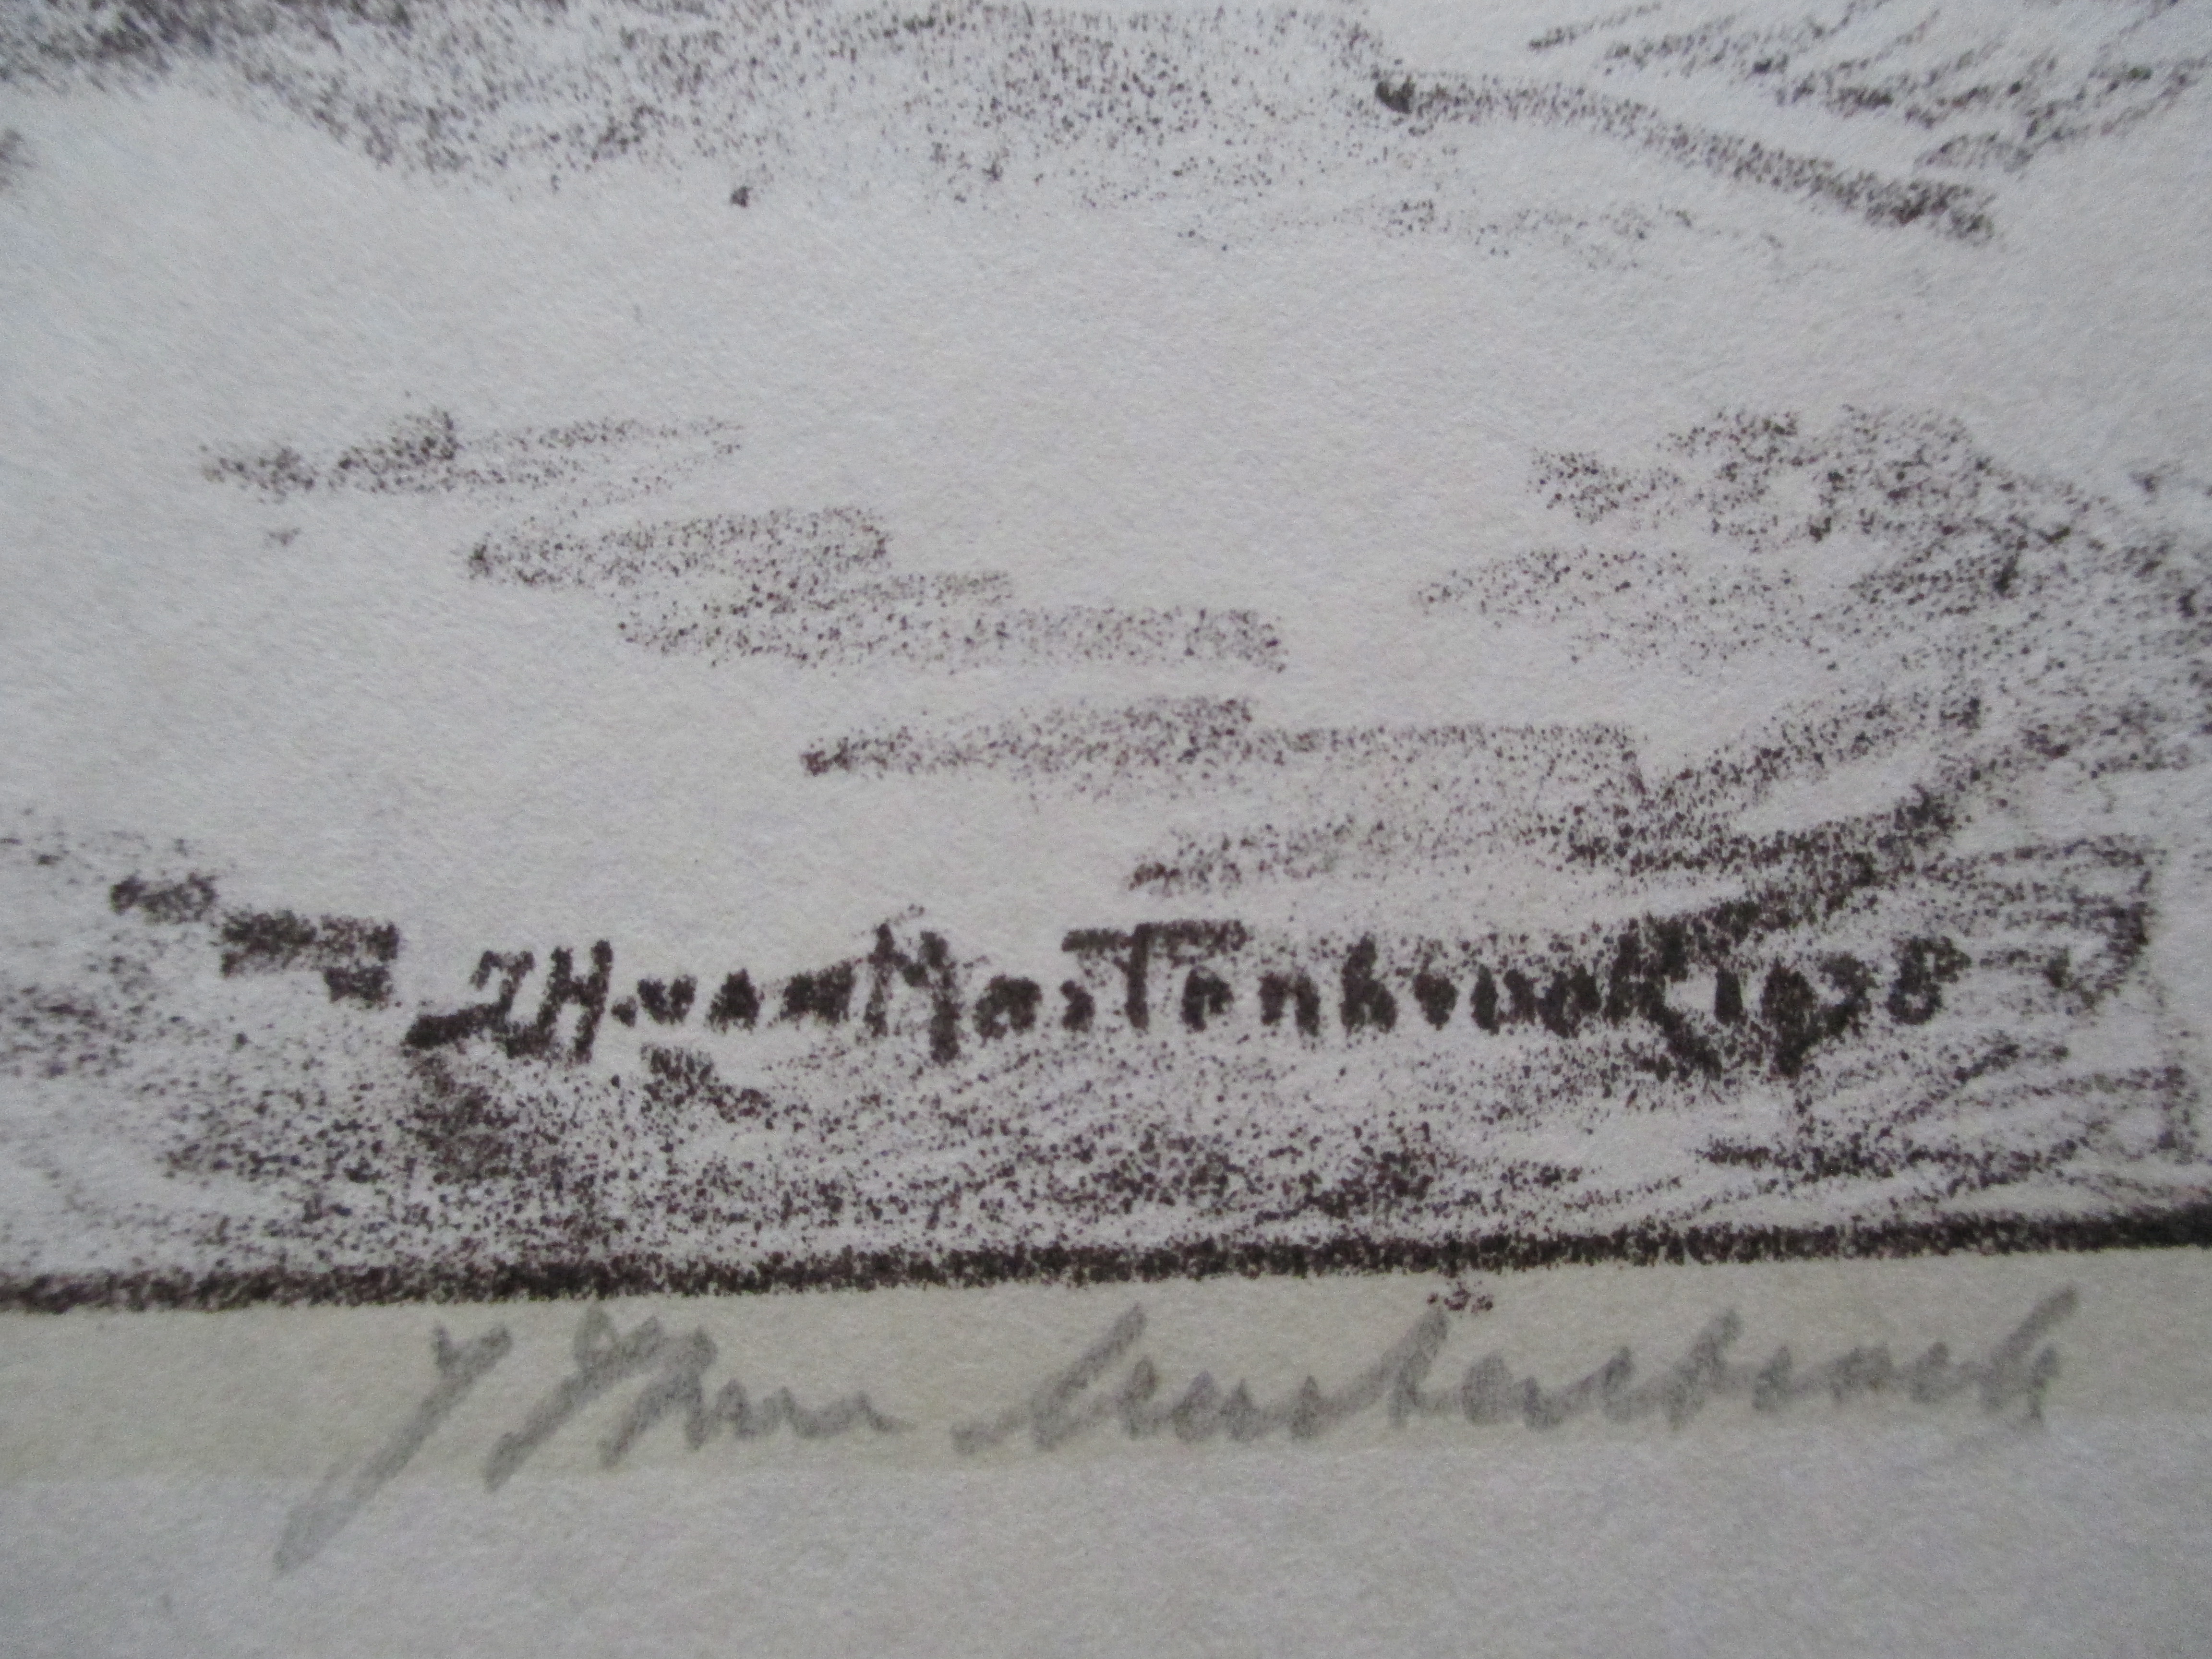 JH.van Mastenbroek 1938
JHvan Mastenbroek